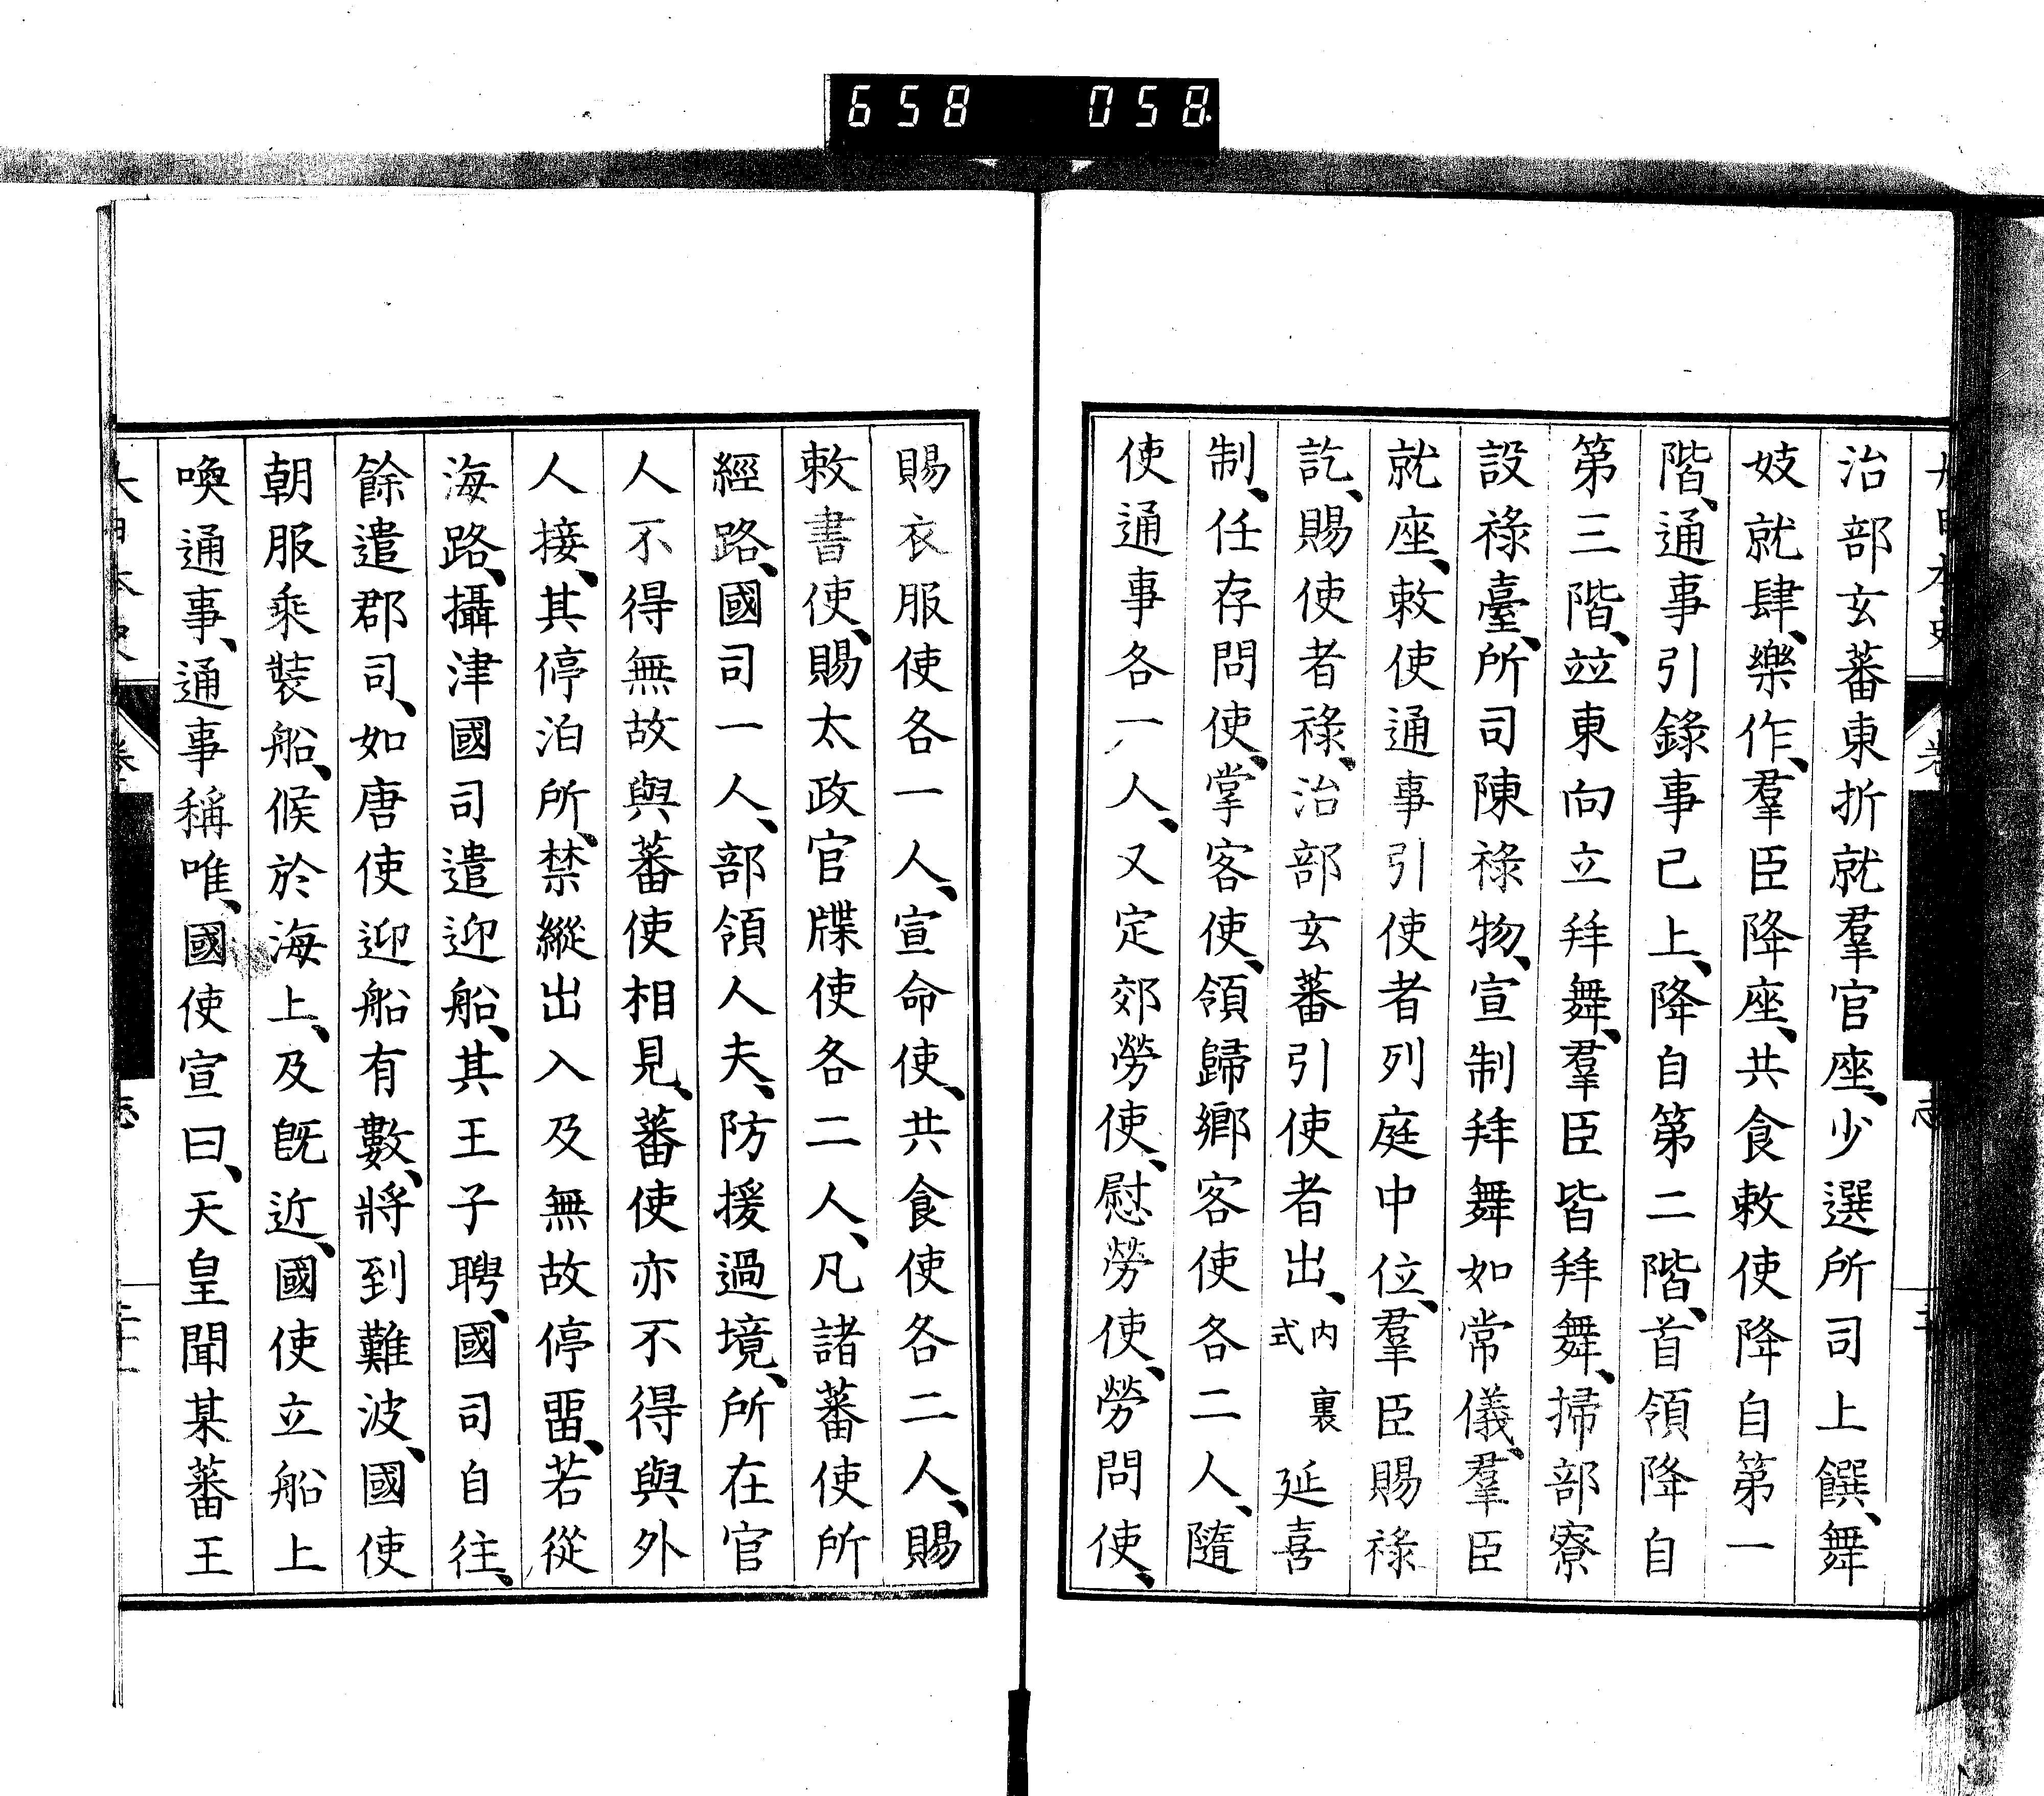 658 058
治部玄蕃東折就羣官座、少選所司上饌、舞
妓就肆、樂作、羣臣降座、共食敕使降自第一
階、通事引錄事已上、降自第二階、首領降自
第三階、竝東向立拜舞、羣臣皆拜舞、掃部寮
設祿臺、所司陳祿物、宣制拜舞如常儀、羣臣
就座、敕使通事引使者列庭中位、羣臣賜祿
訖、賜使者祿、治部玄蕃引使者出、內裏式 延喜
制、任存問使、掌客使、領歸鄉客使各二人、隨
使通事各一人、又定郊勞使、慰勞使、勞問使、
賜衣服使各一人、宣命使、共食使各二人、賜
敕書使、賜太政官牒使各二人、凡諸蕃使所
經路、國司一人、部領人夫、防援過境、所在官
人不得無故與蕃使相見、蕃使亦不得與外
人接、其停泊所、禁縱出入及無故停畱、若從
海路、攝津國司遣迎船、其王子聘、國司自往、
餘遣郡司、如唐使迎船有數、將到難波、國使
朝服乘裝船、候於海上、及旣近、國使立船上
喚通事、通事稱唯、國使宣曰、天皇聞某蕃王